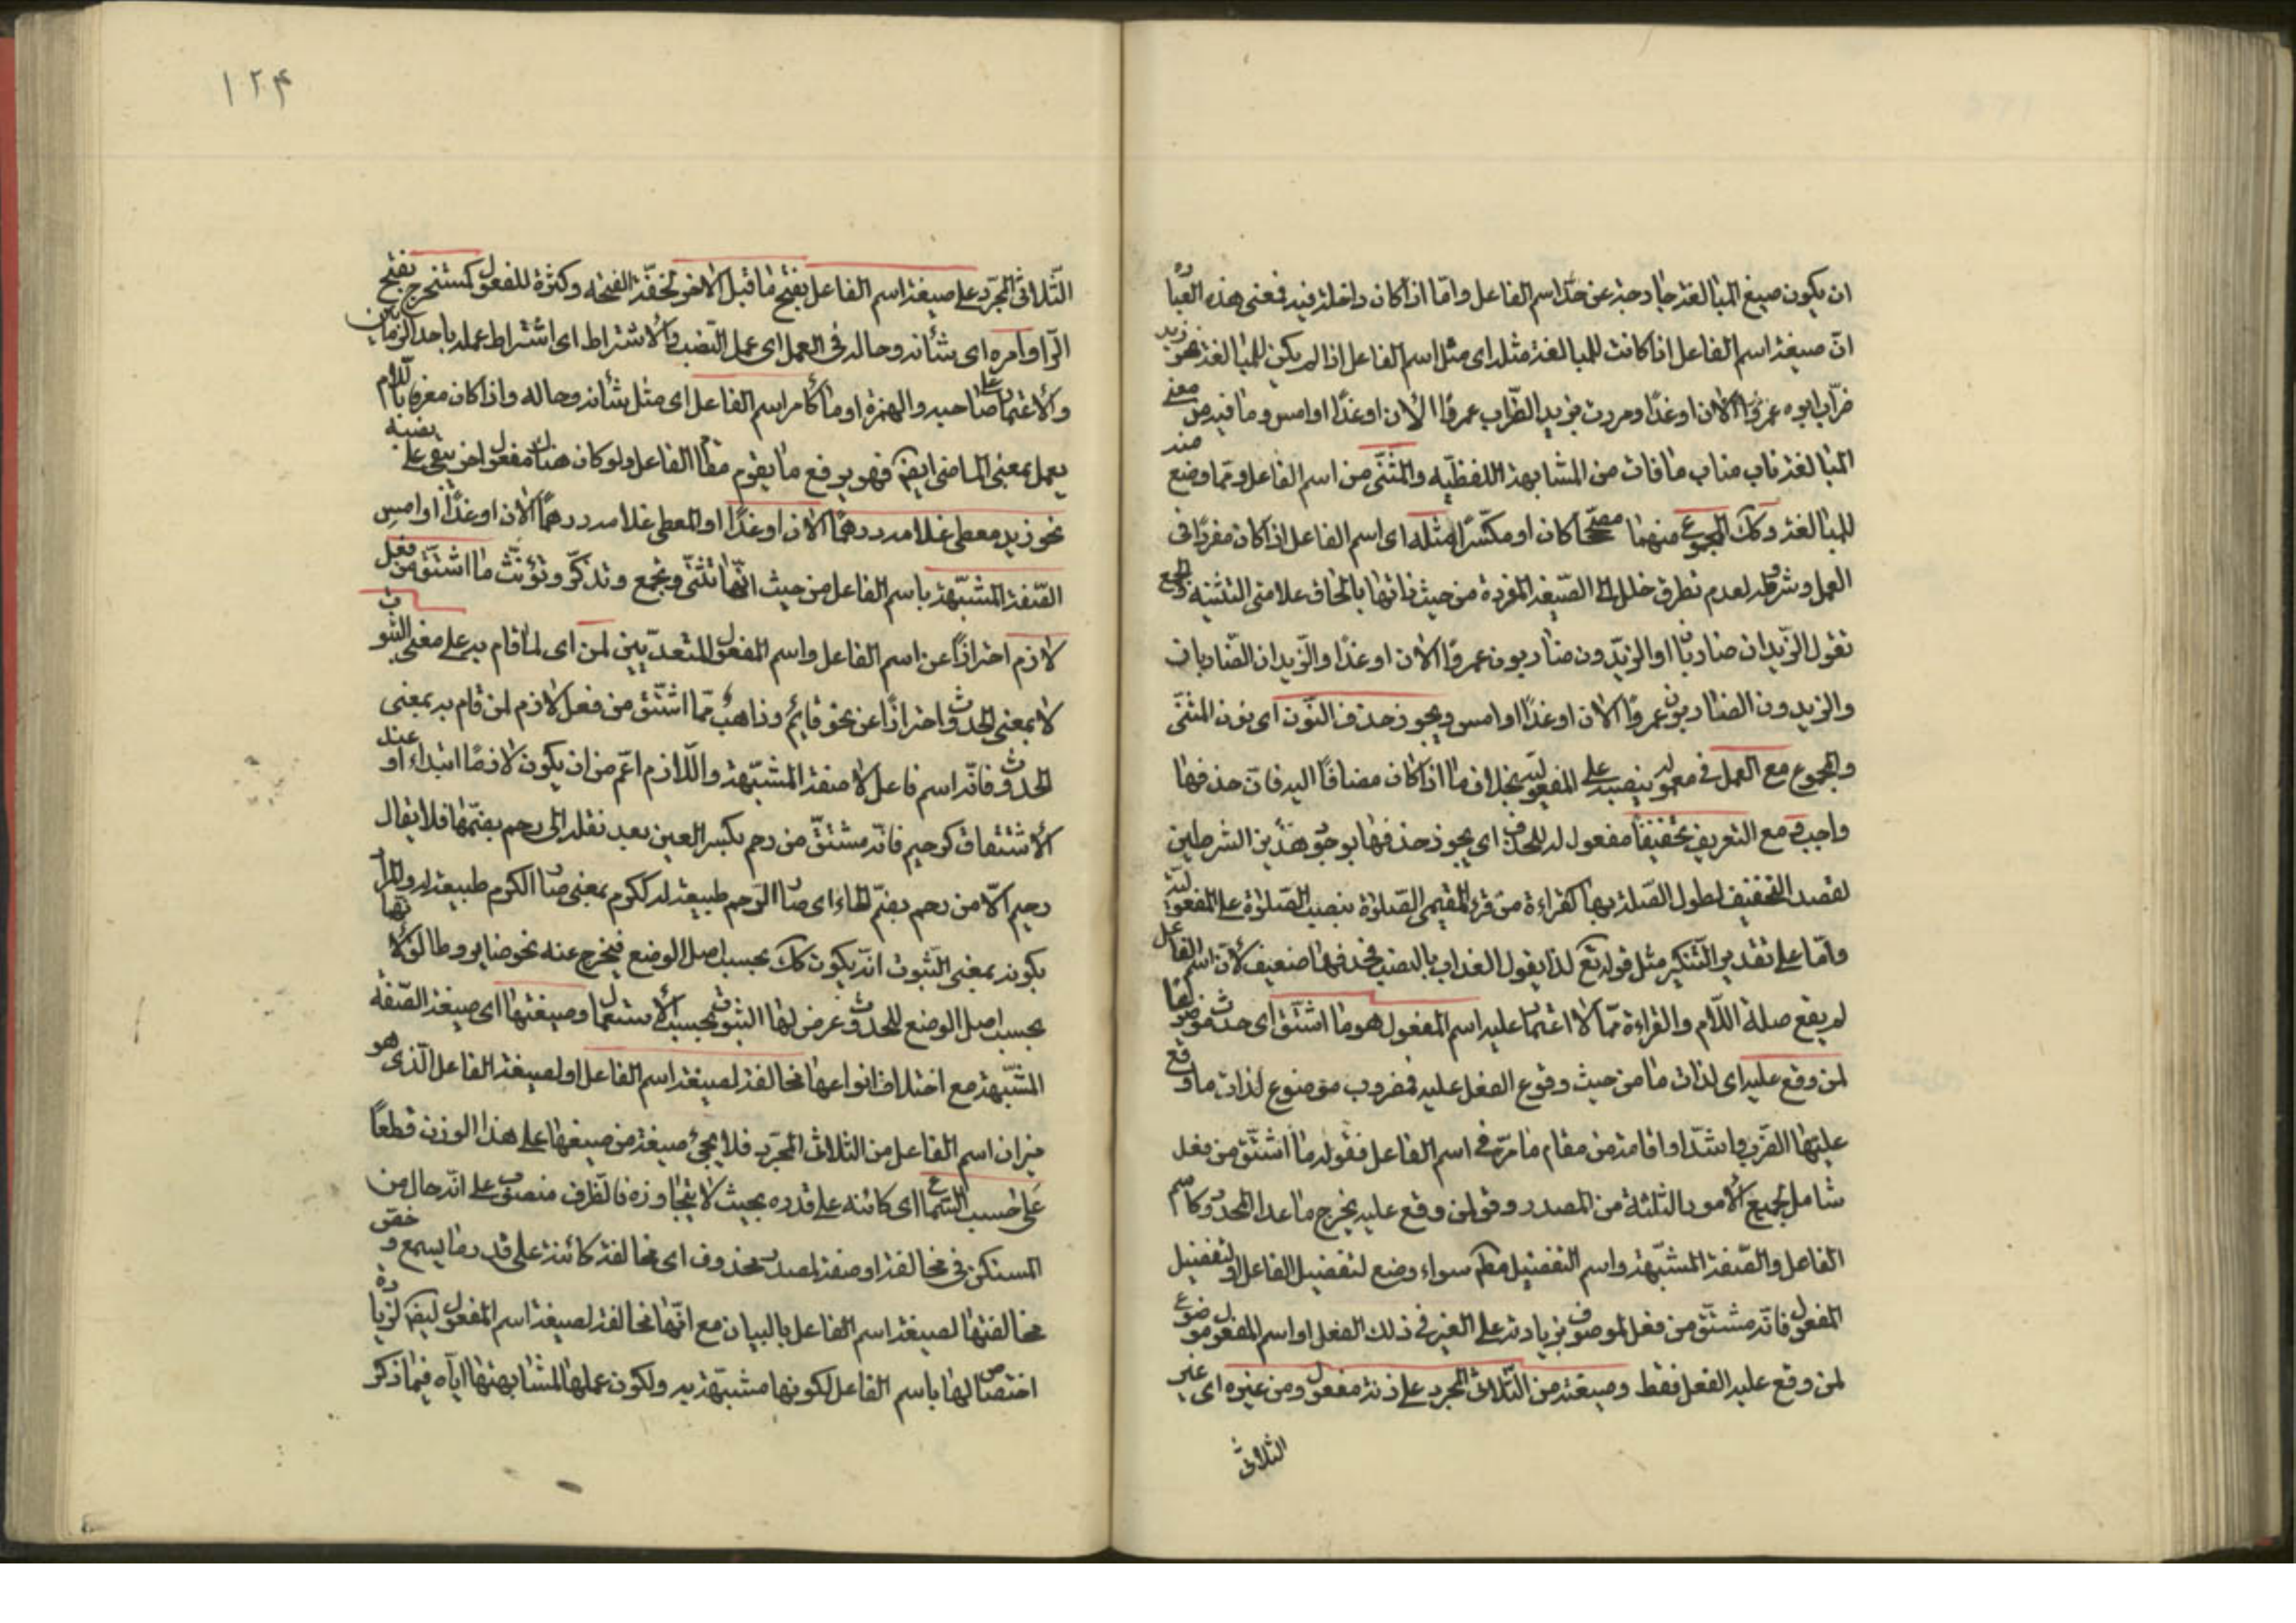 ان يكون صيغ المبالغة خارجة عن حد اسم الفاعل واما اذا كان داخلة فيه فمعنى هذه العبارة
ان صيغة اسم الفاعل اذا كانت للمبالغة مثله اى مثل اسم الفاعل اذا لم يكن للمبالغة نحو زيد
ضرّاب ابوه عمروًا الآن او غدًا ومررت بزيد الضّراب عمروًا الآن او غدًا او امس وما فيه من معنى
المبالغة ناب مناب ما فات من المشابهة اللفظيّه والمثنّى من اسم الفاعل ومما وضع منه
للمبالغة وكك المجموع منهما مصحّحًا كان او مكسّرًا مثله اى اسم الفاعل اذا كان مفردًا فى
العمل وشروطه لعدم تطرق خلل الى الصّيغة المفردة من حيث ذاتها بالحاق علامتى التثنية والجمع
تقول الزّيدان ضاربان او الزيدون ضاربون عمروًا الآن او غدًا والزيدان الضاربان
والزيدون الضاربون عمروًا الآن او غدًا او امس ويجوز حذف النّون اى نون المثنّى
والمجموع مع العمل فى معموله بنصبه على المفعوليّة بخلاف ما اذا كان مضافًا اليه فان حذفها
واجب ومع التعريف تخفيفًا مفعول له للحذف اى يجوز حذفها بوجود هذين الشرطين
لقصد التخفيف لطول الصّلة بها كقراءة من قرء المقيمى الصّلوة بنصب الصّلوة على المفعوليّة
وامّا على تقدير التّنكير مثل قوله تع لذايقوا العذاب بالنصب فحذفها ضعيف لانّ اسم الفاعل
لم يقع صلة اللّام والقراءة ممّا لا اعتماد عليه اسم المفعول هو ما اشتق اى حدث موضوعًا
لمن وقع عليه اى لذات ما من حيث وقوع الفعل عليه فمضروب موضوع لذات ما وقع
عليها الضّرب واشتدا واقامة من مقام ما مرّ فى اسم الفاعل فقوله ما اشتّق من فعل
شامل لجميع الامور الثلثة من المصدر وقوله لمن وقع عليه يخرج ما عدا المحدود كاسم
الفاعل والصّفة المشبّهة واسم التفضيل مطم سواء وضع لتفضيل الفاعل او لتفضيل
المفعول فانّه مشتقّ من فعل لموصوف بزيادة على الغير فى ذلك الفعل او اسم المفعول موضوع
لمن وقع عليه الفعل فقط وصيغته من الثّلاثى المجرد على زنة مفعول ومن غيره اى غير
الثلاثى
١٢۴
الثّلاثى المجرّد على صيغة اسم الفاعل بفتح ما قبل الآخر لخفّة الفتحة وكثرة للمفعول كمستخرج بفتح
الرّا وامره اى شأنه وحاله فى العمل اى عمل النّصب والاشتراط اى اشتراط عمله باحد الزمانين
والاعتماد على صاحبه والهمزة او ما كأمر اسم الفاعل اى مثل شأنه وحاله واذا كان معرفا باللام
يعمل بمعنى الماضى ايضً فهو يرفع ما يقوم مقام الفاعل ولو كان هناك مفعول اخر يبقى على نصبه
نحو زيد معطى غلامه درهمًا الآن او غدًا او المعطى غلامه درهمًا الآن او غدًا او امس
الصّفة المشبّهة باسم الفاعل من حيث انّها تثنّى وتجمع وتذكّر وتؤنّث ما اشتّق من فعل
لازم احترازًا عن اسم الفاعل واسم المفعول المتعدّيين لمن اى لما قام به على معنى الثبوت
لا بمعنى الحدوث احترازًا عن نحو قايمٌ وذاهبٌ ممّا اشتّق من فعل لازم لمن قام به بمعنى
الحدوث فانّه اسم فاعل لا صفة المشبّهة واللّازم اعّم من ان يكون لازمًا ابتداء او عند
الاشتقاق كرحيم فانّه مشتقّ من رحم بكسر العين بعد نقله الى رحم بضمّها فلا يقال
رحيم الّا من رحم بضمّ الحاء اى صار الرّحم طبيعة له ككرم بمعنى صار الكرم طبيعة له والمراد
بكونه بمعنى الثّبوت انّه يكون كك بحسب اصل الوضع فيخرج عنه نحو ضامر وطالق لانّها
بحسب اصل الوضع للحدوث عرض لها الثبوت بحسب الاستعمال وصيغتها اى صيغة الصّفة
المشبّهة مع اختلاف انواعها مخالفة لصيغة اسم الفاعل او لصيغة الفاعل الّذى هو
ميزان اسم الفاعل من الثلاثى المجرّد فلا يجئ صيغة من صيغها على هذا الوزن قطعاً
على حسب السّماع اى كائنه على قدره بحيث لا يتجاوزه فالظرف منصوب على انّه حال من
المستكن فى مخالفة او صفة لمصدر محذوف اى مخالفة كائنة على قدر ما يسمع وخصّ
مخالفتها لصيغة اسم الفاعل بالبيان مع انّها مخالفة لصيغة اسم المفعول ايضً لزيادة
اختصاص لها باسم الفاعل لكونها مشبّهة به ولكون عملها لمشابهتها ايّاه فيما ذكر